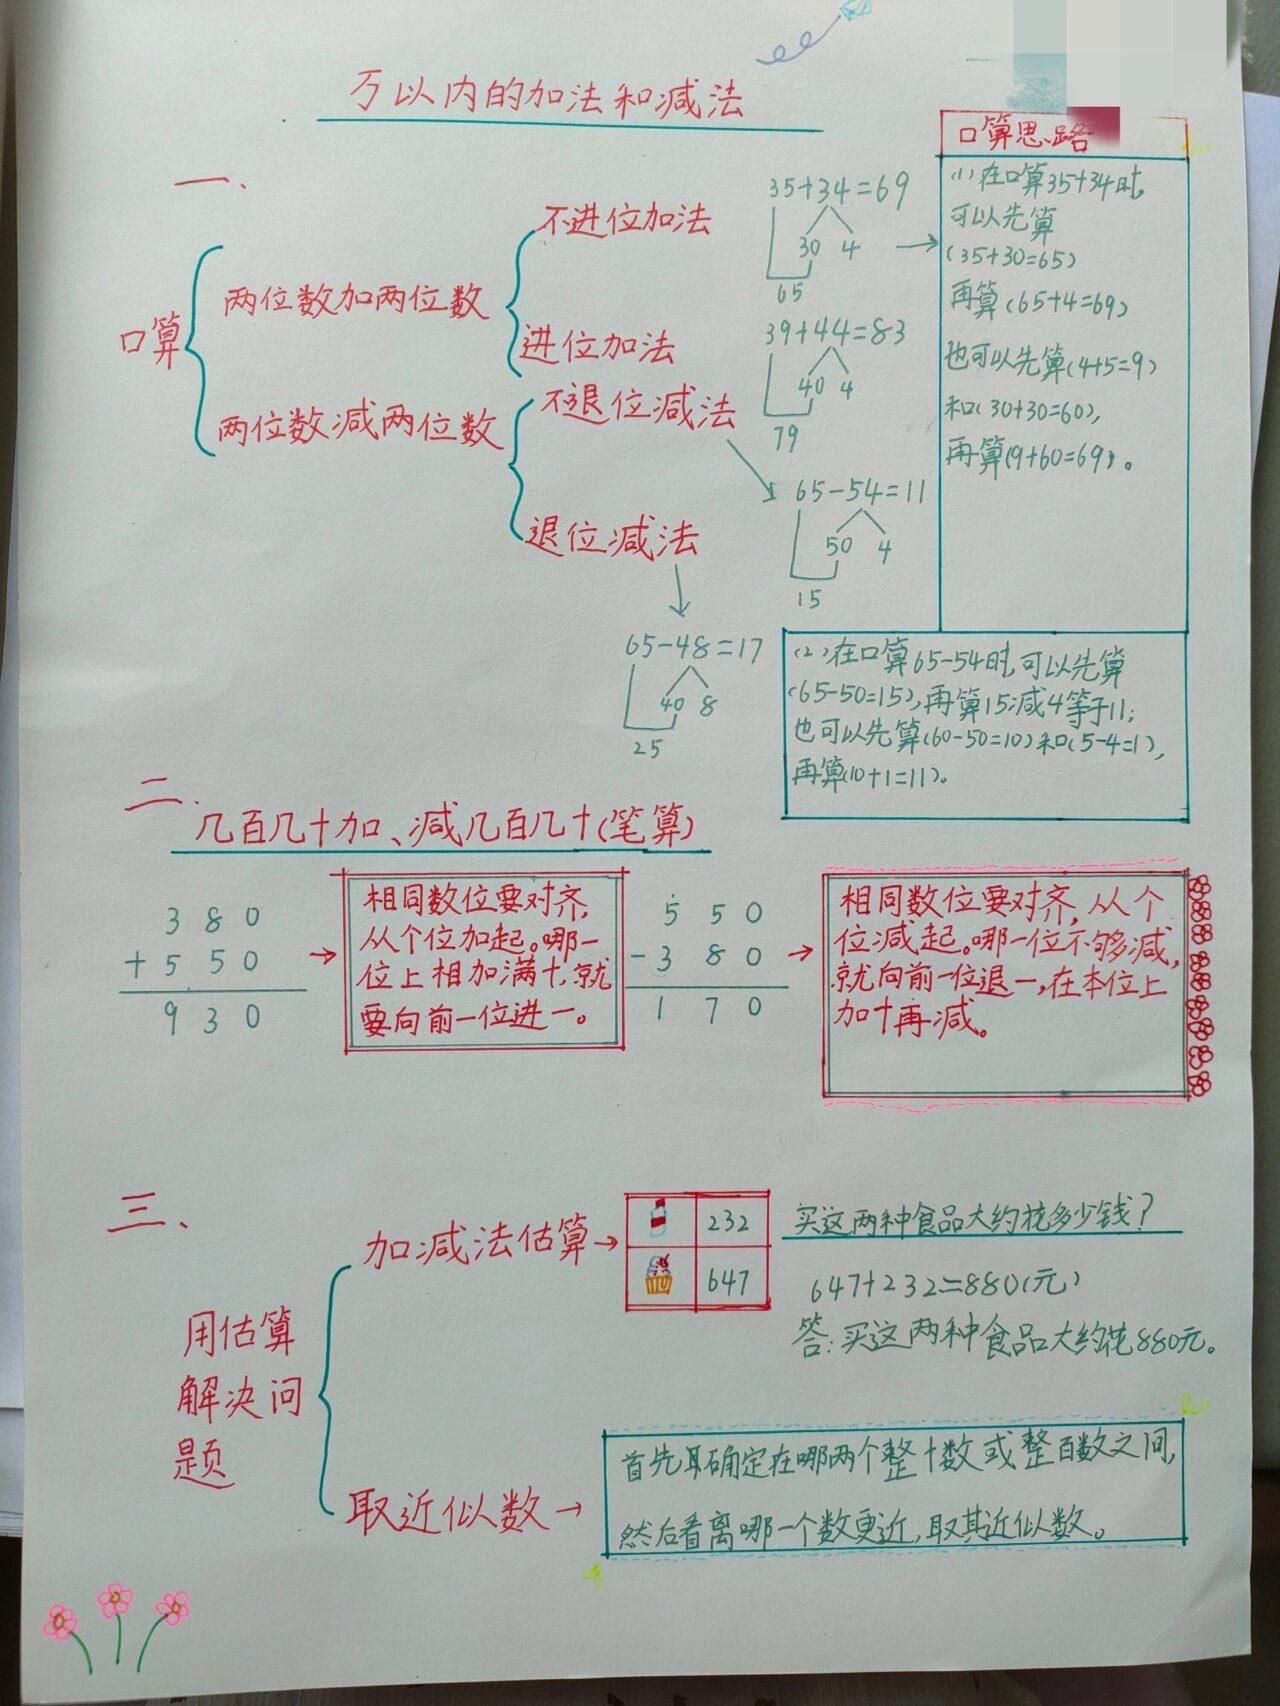 万以内的加法和减法
一、
口算
两位数加两位数
不进位加法
进位加法
两位数减两位数
不退位减法
退位减法
35+34=69
30 4
65
39+44=83
40 4
79
65-54=11
50 4
15
65-48=17
40 8
25
口算思路
(1)在口算35+34时,
可以先算
(35+30=65)
再算(65+4=69)
也可以先算(4+5=9)
和(30+30=60),
再算(9+60=69)。
(2)在口算65-54时,可以先算
(65-50=15),再算15减4等于11;
也可以先算(60-50=10)和(5-4=1),
再算(10+1=11)。
二、
几百几十加、减几百几十(笔算)
3 8 0
+ 5 5 0
9 3 0
相同数位要对齐,
从个位加起。哪一
位上相加满十,就
要向前一位进一。
5 5 0
- 3 8 0
1 7 0
相同数位要对齐,从个
位减起。哪一位不够减,
就向前一位退一,在本位上
加十再减。
三、
用估算
解决问
题
加减法估算
232
647
买这两种食品大约花多少钱?
647+232=880(元)
答:买这两种食品大约花880元。
取近似数
首先确定在哪两个整十数或整百数之间,
然后看离哪一个数更近,取其近似数。